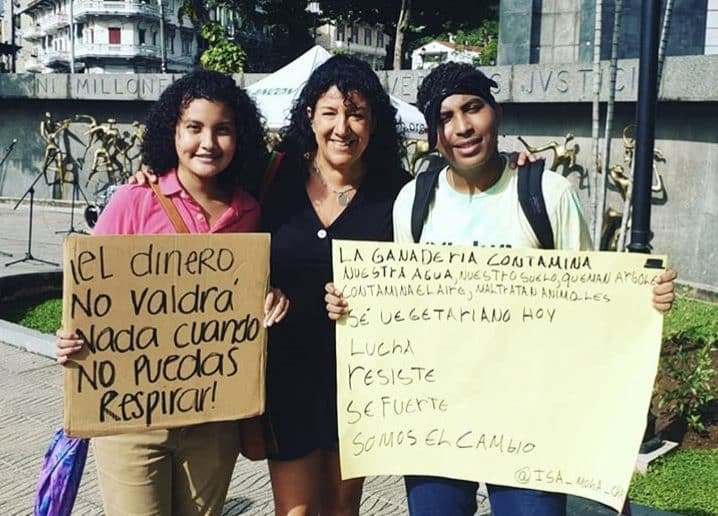 NI MILLONE
JUSTICI
¡EL dinero
No valdrá
Nada cuando
No puedas
Respirar!
LA GANADERIA CONTAMINA
NUESTRA AGUA, NUESTRO SUELO, QUEMAN ARBOLES
CONTAMINA EL AIRE, MALTRATAN ANIMALES
SÉ VEGETARIANO HOY
LUCHA
RESISTE
SE FUERTE
SOMOS EL CAMBIO